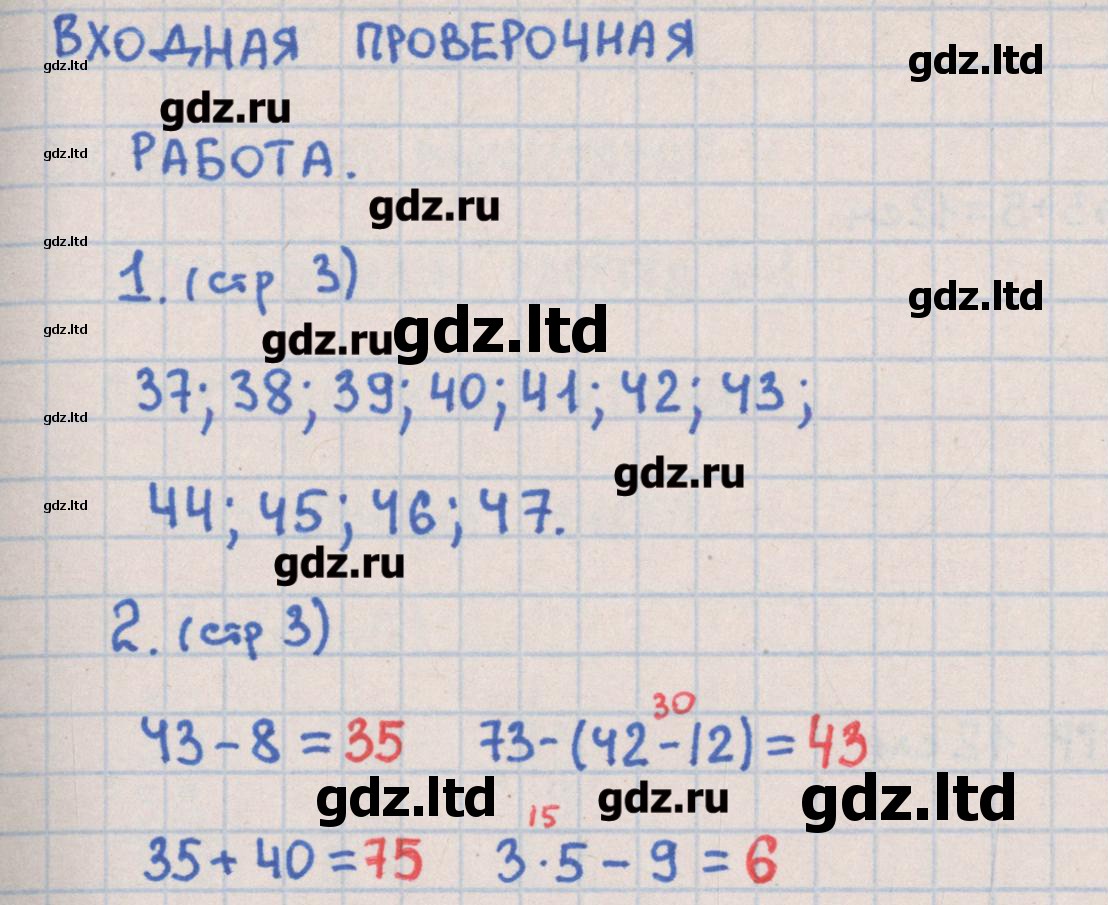 ВХОДНАЯ ПРОВЕРОЧНАЯ
gdz.ltd
gdz.ltd
gdz.ru
РАБОТА.
gdz.ltd
gdz.ru
gdz.ltd
1. (стр 3)
gdz.ltd
gdz.ltd
gdz.ru
gdz.ltd
37; 38; 39; 40; 41; 42; 43;
gdz.ltd
gdz.ru
44; 45; 46; 47.
gdz.ltd
gdz.ru
2. (стр 3)
30
43 - 8 = 35 73 - (42 - 12) = 43
gdz.ltd
gdz.ru
gdz.ltd
15
35 + 40 = 75 3 · 5 - 9 = 6